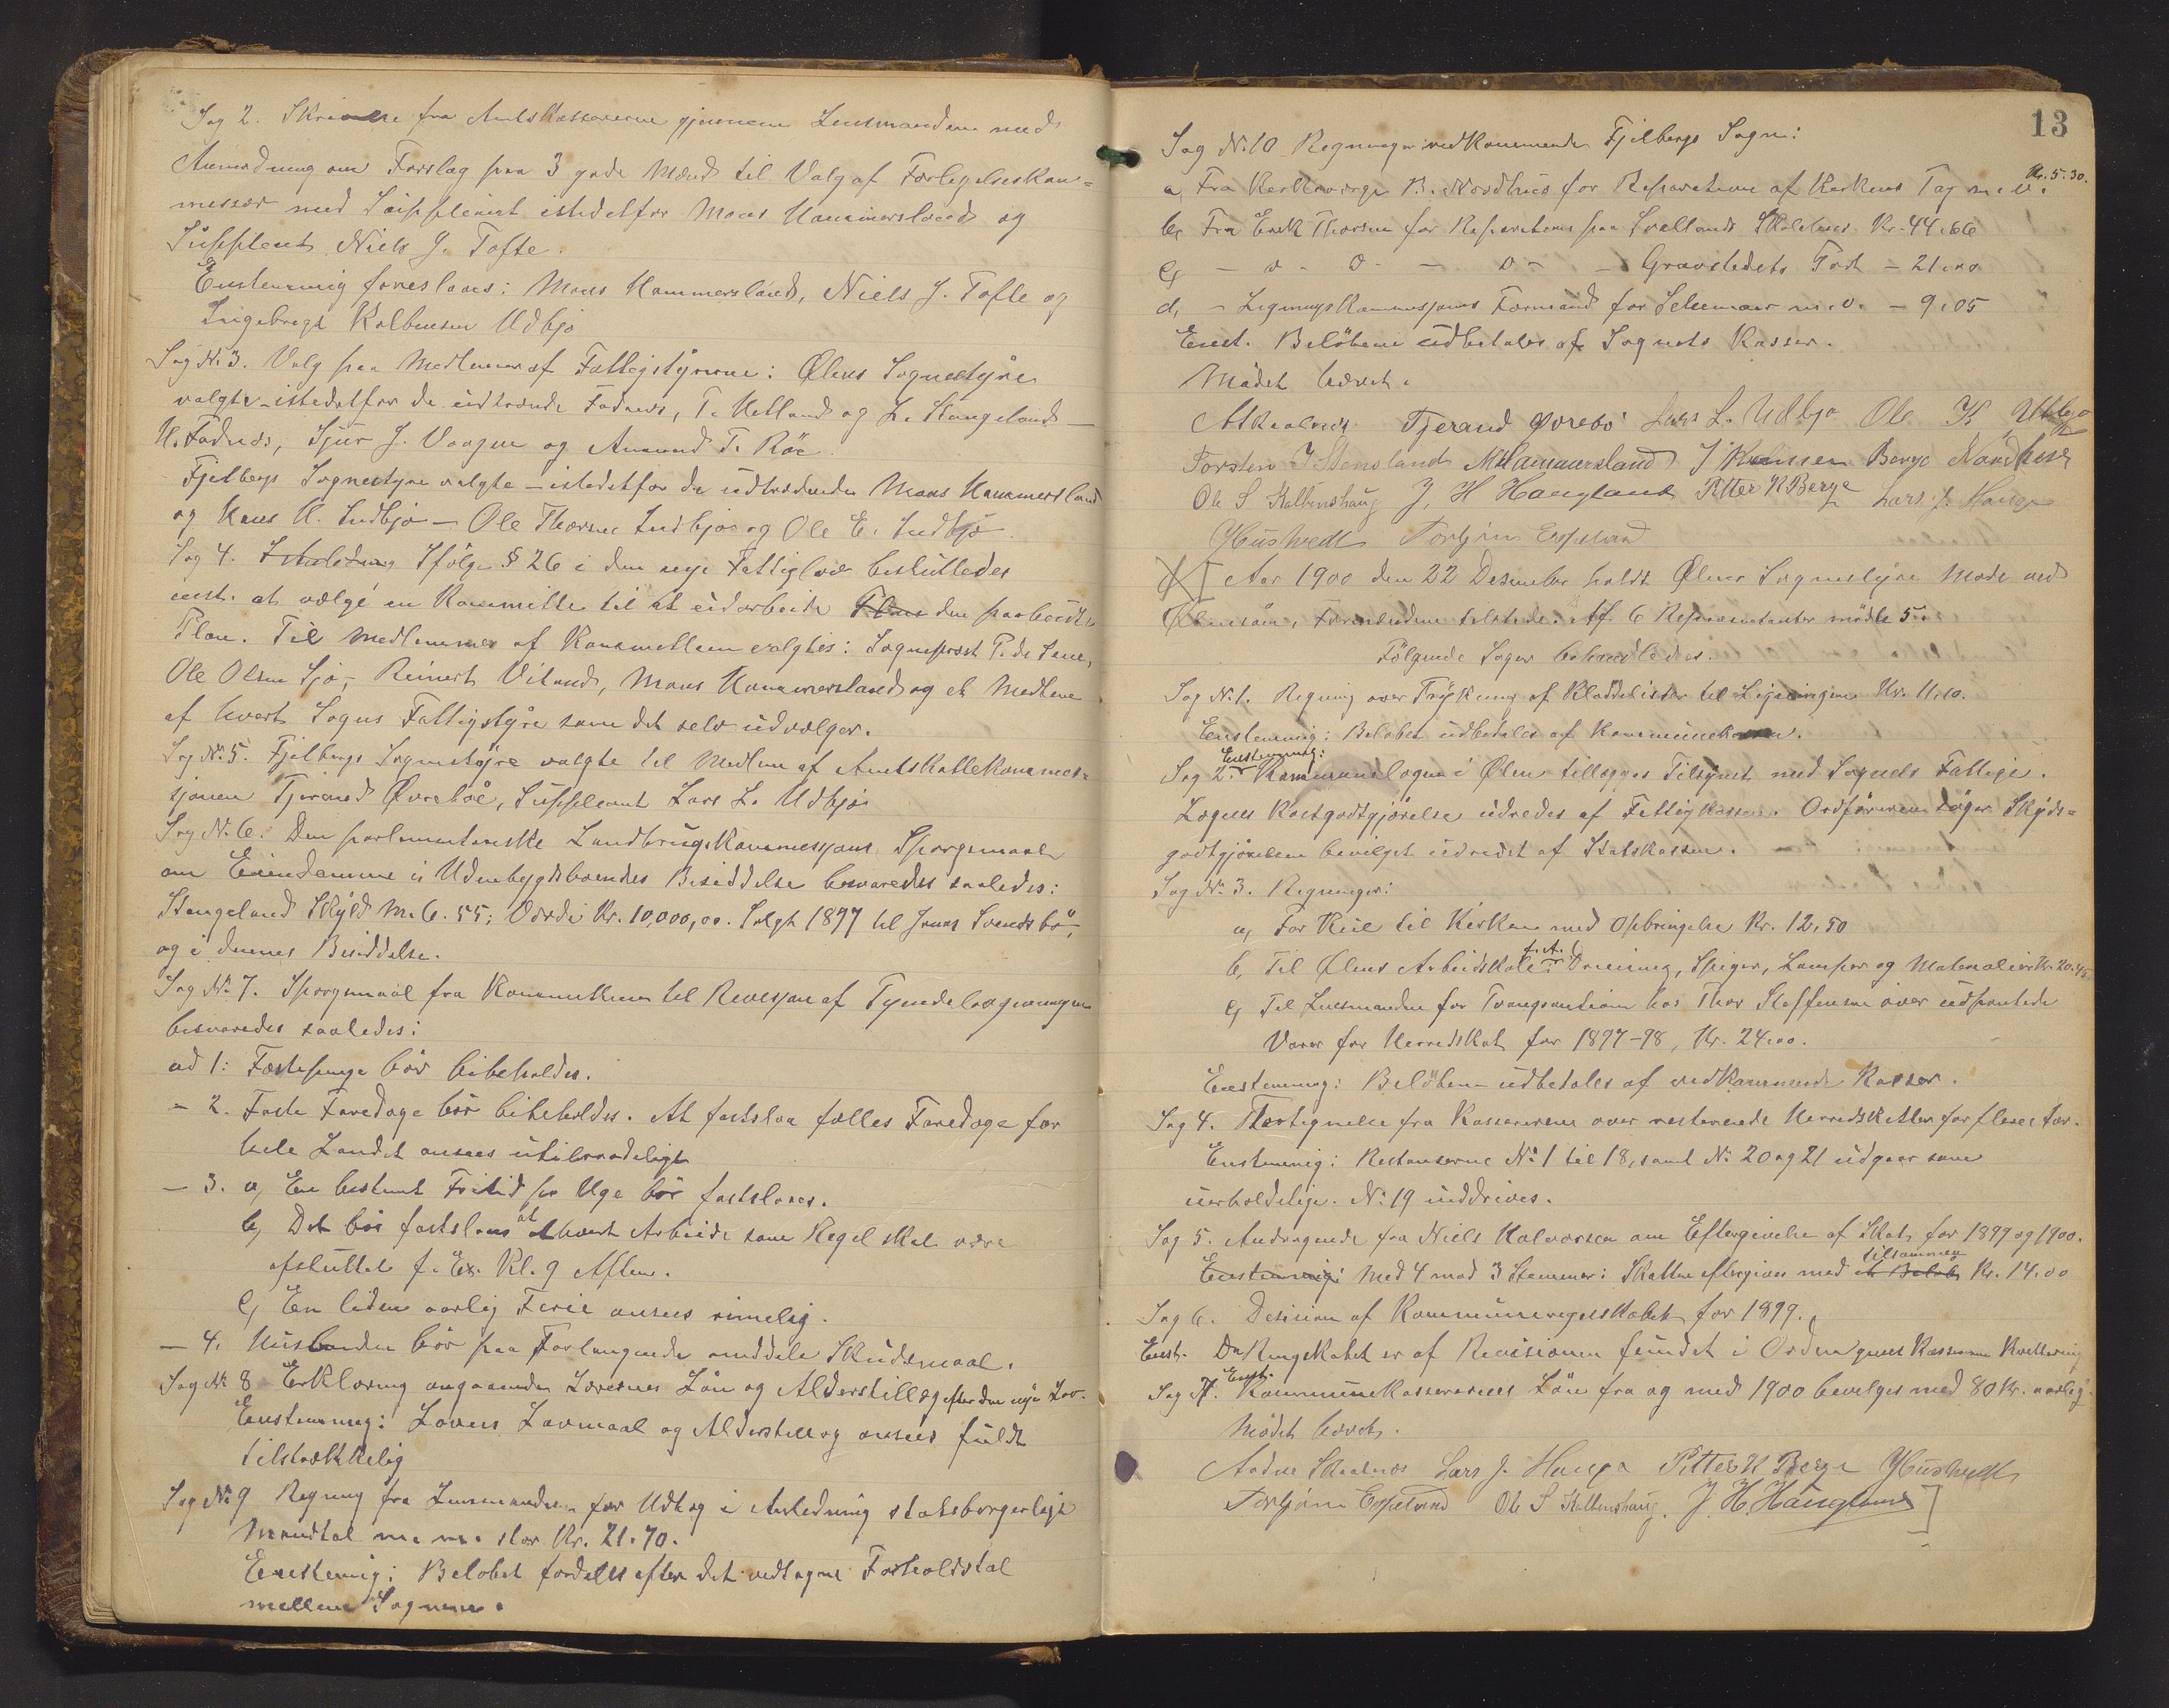 Sag 2. Skrivelse fra Amtskassereren gjennem Lensmanden med
Anmodning om Forslag paa 3 gode Mænd til Valg af Forligelseskom=
messær med Suppleant istedetfor Mons Hammersland og
Suppleant Niels J. Tofte.
Enstemmig foreslaaes: Mons Hammersland, Niels J. Tofte og
Ingebregt Kolbensen Udbjo
Sag N: 3. Valg paa Medlemmer af Fattigstyrerne: Ølens Sognestyre
valgte – istedetfor de udtrædende Fadnes, T. Helland og L. Stangeland –
H. Fadnæs, Sjur J. Vaagen og Amund T. Röe.
Fjelbergs Sognestyre valgte – istedetfor de udtrædende Mons Hammersland
og Hans H. Indbjo – Ole Thorsen Indbjo og Ole E. Indbjo.
Sag 4. Ifölge § 26 i den nye Fattiglov besluttedes
enst. at vælge en Kommitte til at udarbeide den paabudte
Plan. Til Medlemmer af Kommitteen valgtes: Sogneprest P. de Seue,
Ole Olsen Sjo, Reinert Viland, Mons Hammersland og et Medlem
af hvert Sogns Fattigstyre som det selv udvælger.
Sag No 5. Fjelbergs Sognestyre valgte til Medlem af Amtsskattekommis=
sjonen Tjerand Øvrebö, Suppleant Lars L. Udbjo
Sag N: 6. Den parlamentariske Landbrugskommissjons Spørgsmaal
om Eiendomme i Udenbygdsboendes Besiddelse besvaredes saaledes:
Stangeland Skyld M. 6.55; Værdi Kr. 10,000,00. Solgt 1897 til Jonas Svendsbö,
og i dennes Besiddelse.
Sag No 7. Spørgsmaal fra Kommitteen til Revisjon af Tyendelovgivningen
besvaredes saaledes:
ad 1: Fæstepenge bör bibeholdes.
– 2. Faste Faredage bör bibeholdes. At fastslaa fælles Faredage for
hele Landet ansees utilraadeligt
– 3. a, En bestemt Fritid pr Uge bör fastslaaes.
b, Det bör fastslaaes at hvert Arbeide som Regel skal være
afsluttet f. Ex. Kl. 9 Aften.
c, En liden aarlig Ferie ansees rimelig.
– 4. Husbonden bör paa Forlangende meddele Skudsmaal.
Sag No 8 Erklæring angaaende Lærernes Lön og Alderstillæg efter den nye Lov.
Enstemmig: Lovens Lavmaal og Alderstillæg ansees fuldt
tilstrækkelig
Sag No 9 Regning fra Lensmanden for Udtog i Anledning statsborgerlige
Mandtal m. m. stor Kr. 21.70.
Enstemmig: Belöbet fordeles efter det vedtagne Forholdstal
mellem Sognene.
13
Sag N: 10 Regninger vedkommende Fjelbergs Sogn:
a, Fra Kirkeværge B. Nordhus for Reparation af Kirkens Tag m. v. Kr. 5.30.
b, Fra Erik Thorsen for Reparation paa Svellands Skolehus Kr. 44.66
c, – o – o – o – – Gravstedets Port – 21.00
d, – Ligningskommissjons Formand for Schemaer m. v. – 9.05
Enst. Belöbene udbetales af Sognets Kasser.
Mödet hævet.
A Skaalnes Tjerand Øvrebö Lars L. Udbjo Ole K Udbjo
Torsten J Stensland M Hammersland J Kolbensen Børge Nordhus
Ole S Kalbenshaug J. H Haugland Pitter K Berge Lars J. Hauge
Y Husvedt Torbjörn Espeland
[ Aar 1900 den 22 Desember holdt Ølens Sognestyre Mode ved
Ølensöen, Formanden tilstede. Af 6 Repræsentanter mödte 5.
Fölgende Sager behandledes.
Sag N: 1. Regning over Trykning af Kladdelister til Ligningen Kr. 11.10.
Enstemmig: Belöbet udbetales af Kommunekassen.
Enstemmig:
Sag 2. Kommunelægen i Ølen tillægges Tilsynet med Sognets Fattige.
Lægens Kostgodtgjörelse udredes af Fattigkassen. Ordföreren söger Skyds=
godtgjörelsen bevilget udredet af Statskassen.
Sag No 3. Regninger:
a, For Kul til Kirken med Opbringelse Kr. 12,50
b, Til Ølens Arbeidskole f. A. Driening, Spiger, Lamper og Materialier Kr. 20.45
c, Til Lensmanden for Tvangsauktion hos Thor Steffensen over udpantede
Varer for Herredskat for 1897–98, Kr. 24.00.
Enstemmig: Belöbene udbetales af vedkommende Kasser.
Sag 4. Fortegnelse fra Kassereren over resterende Herredsskatter for flere Aar.
Enstemmig: Restanserne No 1 til 18, samt N: 20 og 21 udgaar som
uerholdelige. N: 19 inddrives.
Sag 5. Andragende fra Niels Halvorsen om Eftergivelse af Skat for 1899 og 1900.
Enstemmig: Med 4 mod 3 Stemmer: Skatten eftergives med et Belöb tilsammen Kr. 14.00
Sag 6. Desision af Kommuneregnskabet for 1899.
Enst. Da Regnskabet er af Revisionen fundet i Orden gives Kassereren Kvittering
Enst.
Sag 7. Kommunekassererens Lön fra og med 1900 bevilges med 80 Kr. aarlig.
Mödet hævet.
Andne Skaalnes Lars J. Hauge Pitter K Berge Y Husvedt
Torbjörn Espeland Ole S Kalbenshaug. J. H. Haugland ]